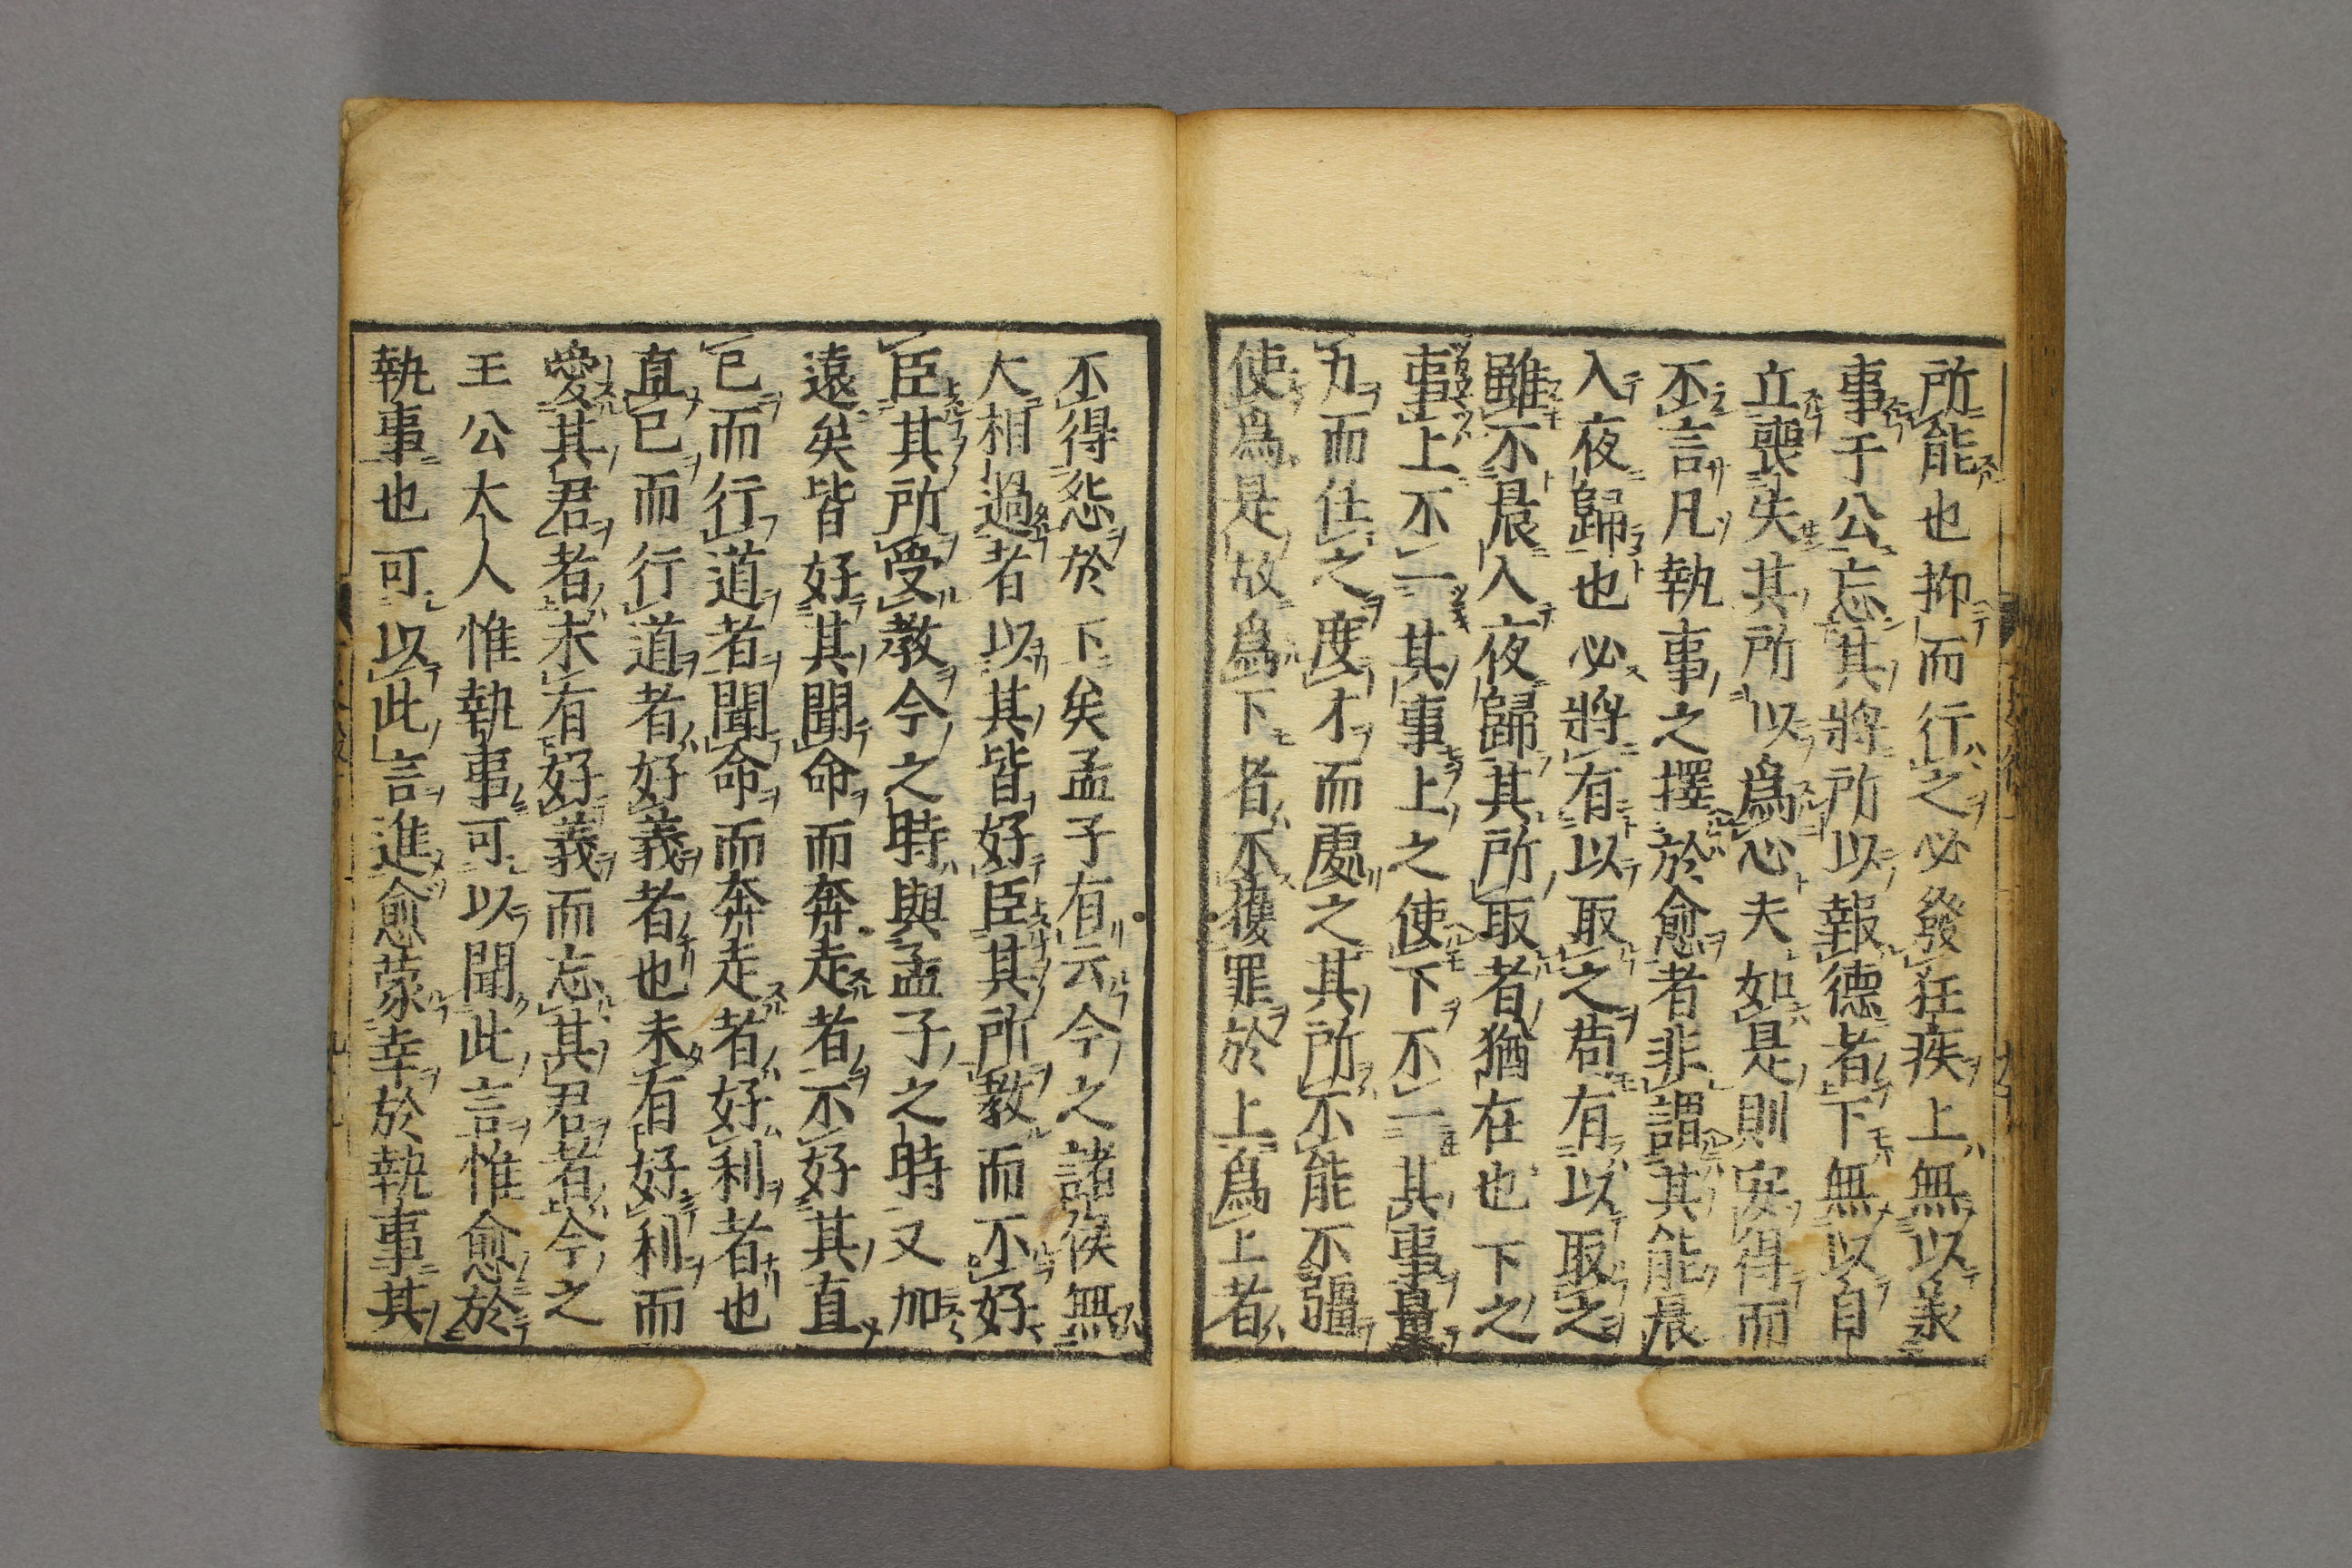 所能也抑而行之必發狂疾上無以羕
事于公忘其將所以報德者下無以自
立喪失其所以爲心夫如是則安得而
不言凡執事之擇於愈者非謂其能晨
入夜歸也必將有以取之苟有以取之
雖不晨入夜歸其所取者猶在也下之
事上不一其事上之使下不一其事量
力而任之度才而處之其所不能不彊
使爲是故爲下者不獲罪於上爲上者
不得怨於下矣孟子有云今之諸侯無
大相過者以其皆好臣其所教而不好
臣其所受教今之時與孟子之時又加
遠矣皆好其聞命而奔走者不好其直
已而行道者聞命而奔走者好利者也
直已而行道者好義者也未有好利而
愛其君者未有好義而忘其君者今之
王公大人惟執事可以聞此言惟愈於
執事也可以此言進愈蒙幸於執事其